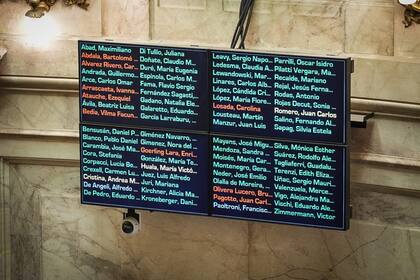 Abad, Maximiliano
Abdala, Bartolomé ...
Alvarez Rivero, Car...
Andrada, Guillermo...
Arrascaeta, Ivanna...
Atauche, Ezequiel
Ávila, Beatriz Luisa
Bedia, Vilma Facun...
Di Tullio, Juliana
Doñate, Claudio M...
Duré, María Eugenia
Espínola, Carlos M...
Fama, Flavio Sergio
Fernández Sagasti...
Gadano, Natalia Ele...
Galaretto, Eduardo...
García Larraburu, ...
Leavy, Sergio Napo...
Ledesma, Claudia A...
Lewandowski, Mar...
Linares, Carlos Alb...
López, Cándida Cri...
López, María Flore...
Losada, Carolina
Lousteau, Martín
Manzur, Juan Luis
Parrilli, Oscar Isidro
Pilatti Vergara, Ma...
Recalde, Mariano
Rejal, Jesús Ferna...
Rodas, Antonio
Rojas Decut, Sonia ...
Romero, Juan Carlos
Salino, Fernando Al...
Sapag, Silvia Estela
Bensusán, Daniel P...
Blanco, Pablo Daniel
Carambia, José Ma...
Cora, Stefania
Corpacci, Lucía Be...
Crexell, Carmen Lu...
Cristina, Andrea M...
De Angeli, Alfredo ...
De Pedro, Eduardo ...
Giménez Navarro, ...
Gimenez, Nora del ...
Goerling Lara, Enri...
González, María Te...
Huala, María Victó...
Juez, Luis Alfredo
Juri, Mariana
Kirchner, Alicia Ma...
Kroneberger, Dani...
Mayans, José Migu...
Mendoza, Sandra ...
Moisés, María Car...
Montenegro, Gera...
Neder, José Emilio
Olalla de Moreira, ...
Olivera Lucero, Bru...
Pagotto, Juan Carl...
Paoltroni, Francisc...
Silva, Mónica Esther
Suárez, Rodolfo Ale...
Tagliaferri, Guadal...
Terenzi, Edith Eliz...
Uñac, Sergio Mauri...
Valenzuela, Merce...
Vigo, Alejandra Ma...
Vischi, Eduardo Ale...
Zimmermann, Victor